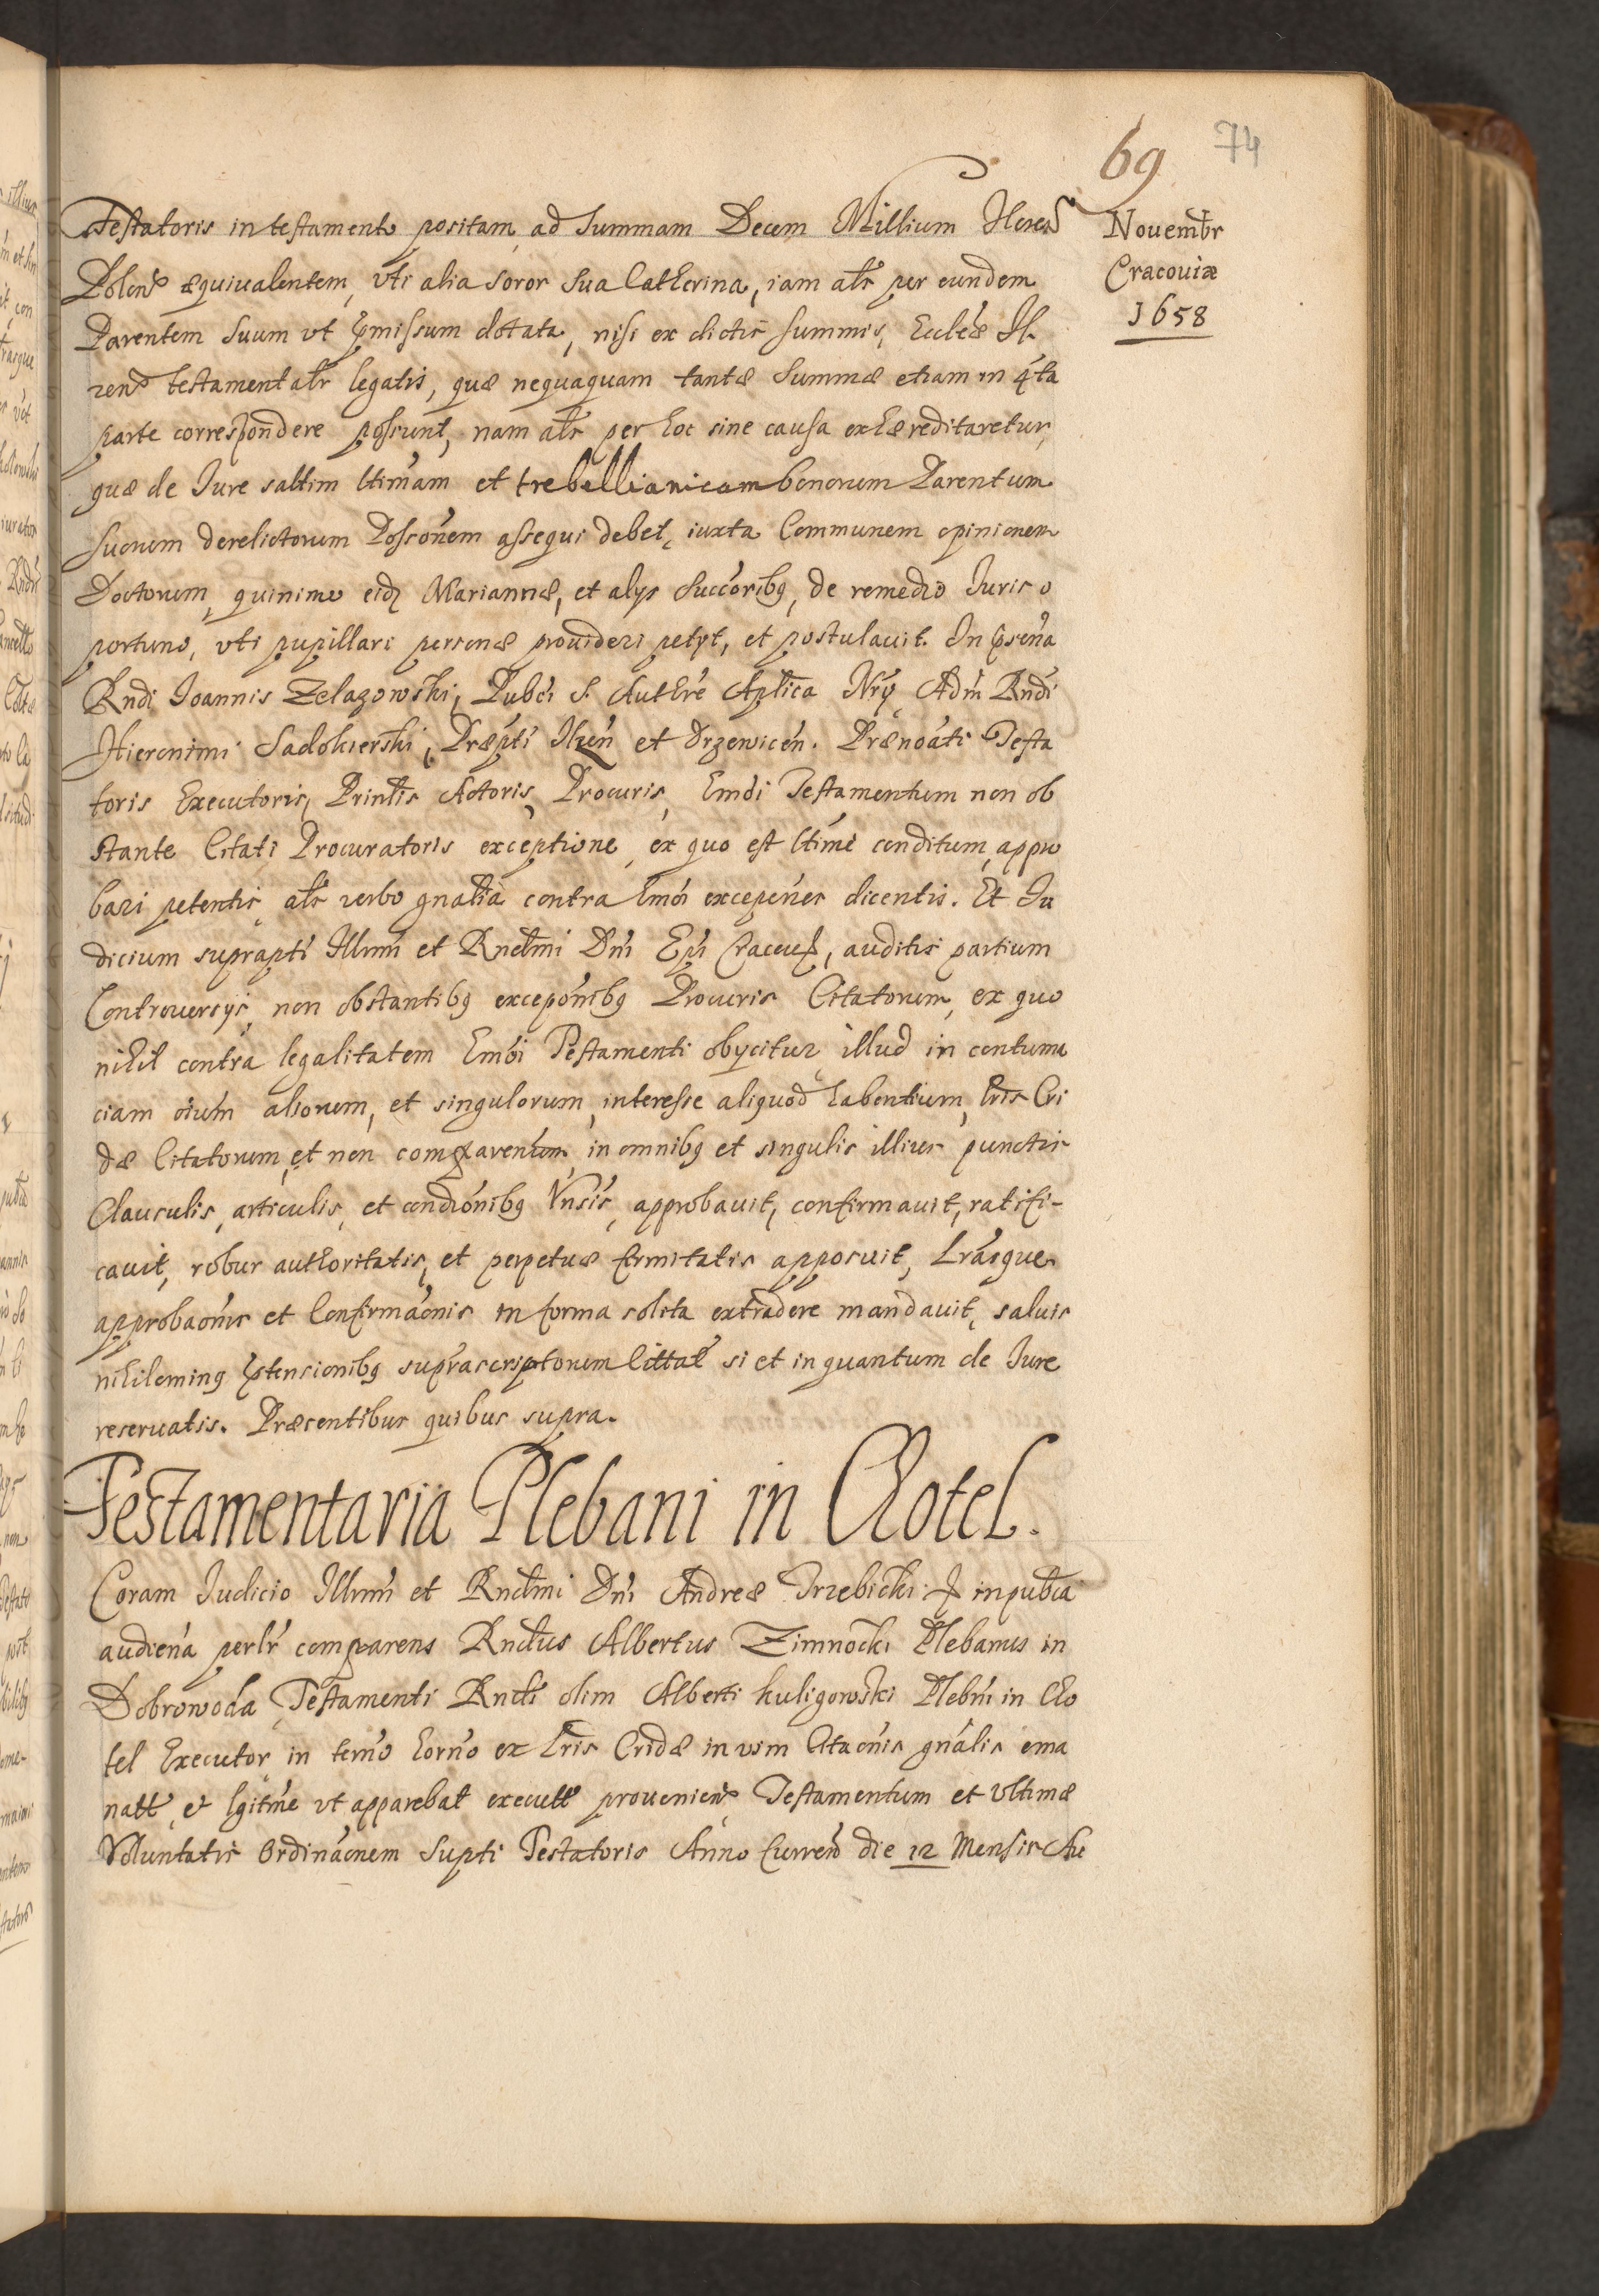 69
74
Nouembr
Cracouiæ
1658
Testatoris in testamento positam, ad Summam Decem Millium Floren
Polon æquiualentem, vti alia soror sua Catherina, iam als per eundem
Parentem Suum vt pmissum dotata, nisi ex dictis summis, Eccleæ Il
zen testamentalr legatis, quæ nequaquam tantæ Summæ etiam in 4ta
parte correspondere possunt, nam als per hoc sine causa exhæreditaretur
quæ de Iure saltim ltimam et trebellianicam bonorum Parentum
suorum derelictorum Posconem assequi debet, iuxta Communem opinionem
Doctorum, quinimo eidz Mariannæ, et alys Succoribq, de remedio Iuris o
portuno, vti pupillari personæ prouideri petyt, et postulauit. In psena
Rndi Ioannis Zelazowski, Pubci S. Authre Aplica Nry Adm Rndi
Hieronimi Sadokierski, Præpti Ilzen et Drzewicen. Prænoati Testa
toris Executoris, Prinlis Actoris, Procuris, Emdi Testamentum non ob
stante Citati Procuratoris exceptione, ex quo est ltime conditum, appro
bari petentis, als verbo gnalia contra Emoi excepenes dicentis. Et Iu
dicium suprapti Illrmi et Rndmi Dni Epi Cracoui, auditis partium
Controuersys, non obstantibq exceponibq Procuris Citatorum, ex quo
nihil contra legalitatem Emdi Testamenti obycitur, illud in contuma
ciam oium aliorum, et singulorum, interesse aliquod habentium, Lris Cri
dæ Citatorum, et non comparentum, in omnibq et singulis illius punctis
Clausulis, articulis, et condionibq Vnsis, approbauit, confirmauit, ratifi-
cauit, robur authoritatis, et perpetuæ firmitatis apposuit, Lrasque
approbaonis et Confirmaonis in forma solita extradere mandauit, saluis
nihilominq ptensionibq suprascriptorum Cittat si et in quantum de Iure
reseruatis. Præsentibus quibus supra.
Testamentaria Plebani in Chotel.
Coram Iudicio Illrmi et Rndmi Dni Andreæ Trzebicki in publca
audiena perlr comparens Rndus Albertus Zimnocki Plebanus in
Dobrowoda, Testamenti Rndi olim Alberti Kuligowski Plebni in Cho
tel Executor, in termo horno ex Lris Cridæ in vim Citaonis gnalis ema
natt, et lgitme vt apparebat executt prouenien Testamentum et Vltimæ
Voluntatis Ordinaonem Supti Testatoris Anno Curren die 12 Mensis Au